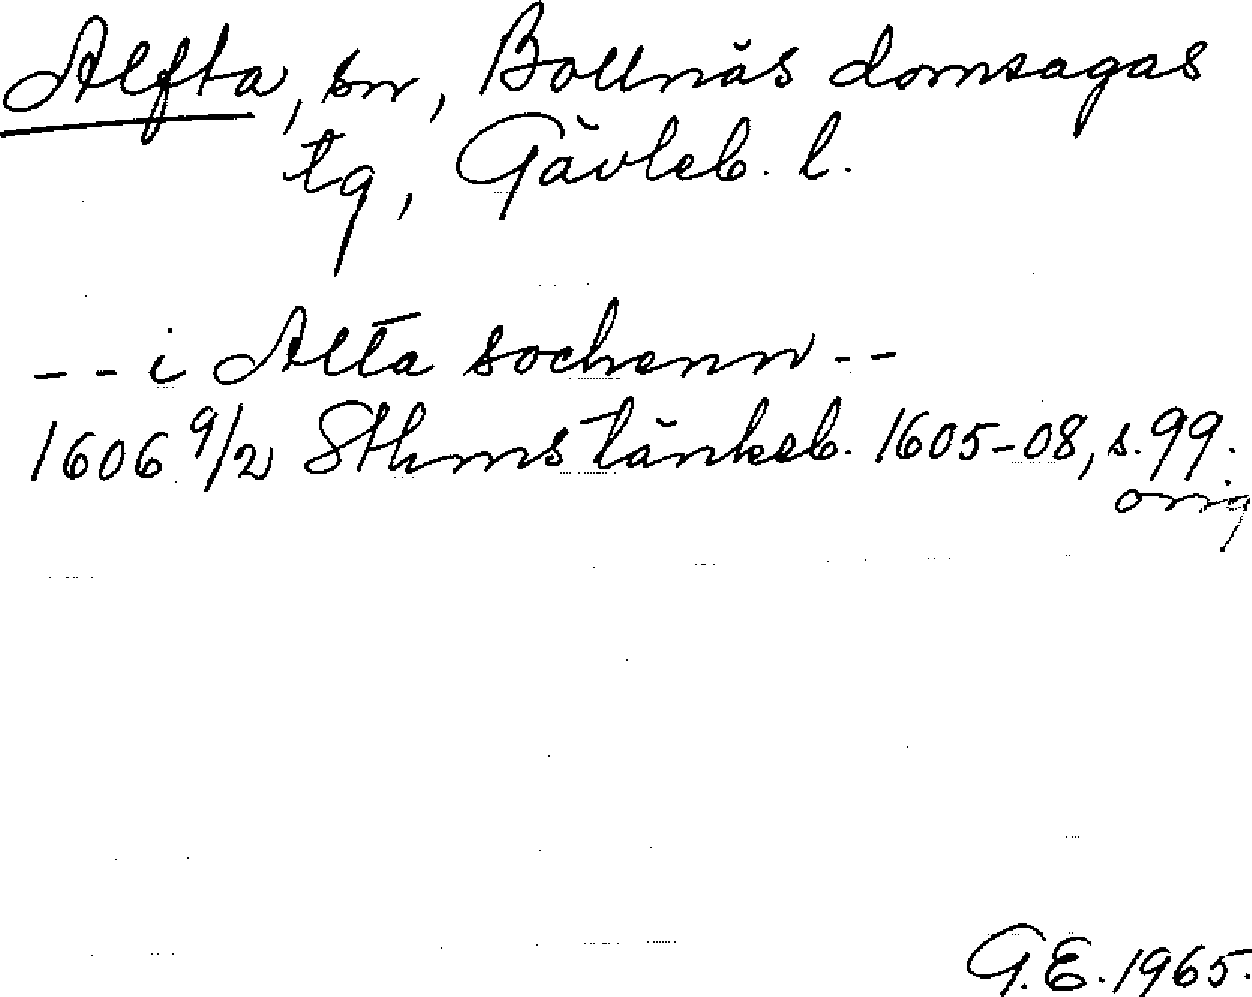 Alfta, sn, Bollnäs domsagas
tg, Gävleb. l.
-- i Alta sochenn --
1606 9/2 Sthms tänkeb. 1605-08, s. 99.
orig
G.E. 1965.